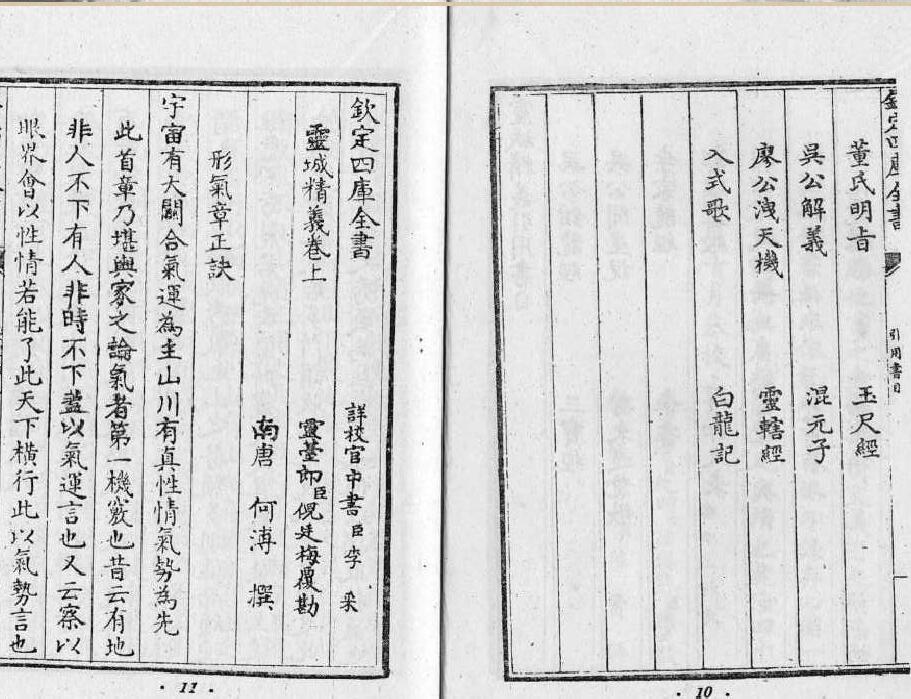 欽定四庫全書
引用書目
董氏明㫖 玉尺經
吳公解義 混元子
廖公洩天機 靈轄經
入式歌 白龍記
· 10 ·
欽定四庫全書
詳校官中書臣李采
靈城精義卷上
靈臺郎臣倪廷梅覆勘
南唐 何溥 撰
形氣章正訣
宇宙有大關合氣運為主山川有真性情氣勢為先
此首章乃堪輿家之論氣者第一機竅也昔云有地
非人不下有人非時不下葢以氣運言也又云察以
眼界會以性情若能了此天下橫行此以氣勢言也
· 11 ·